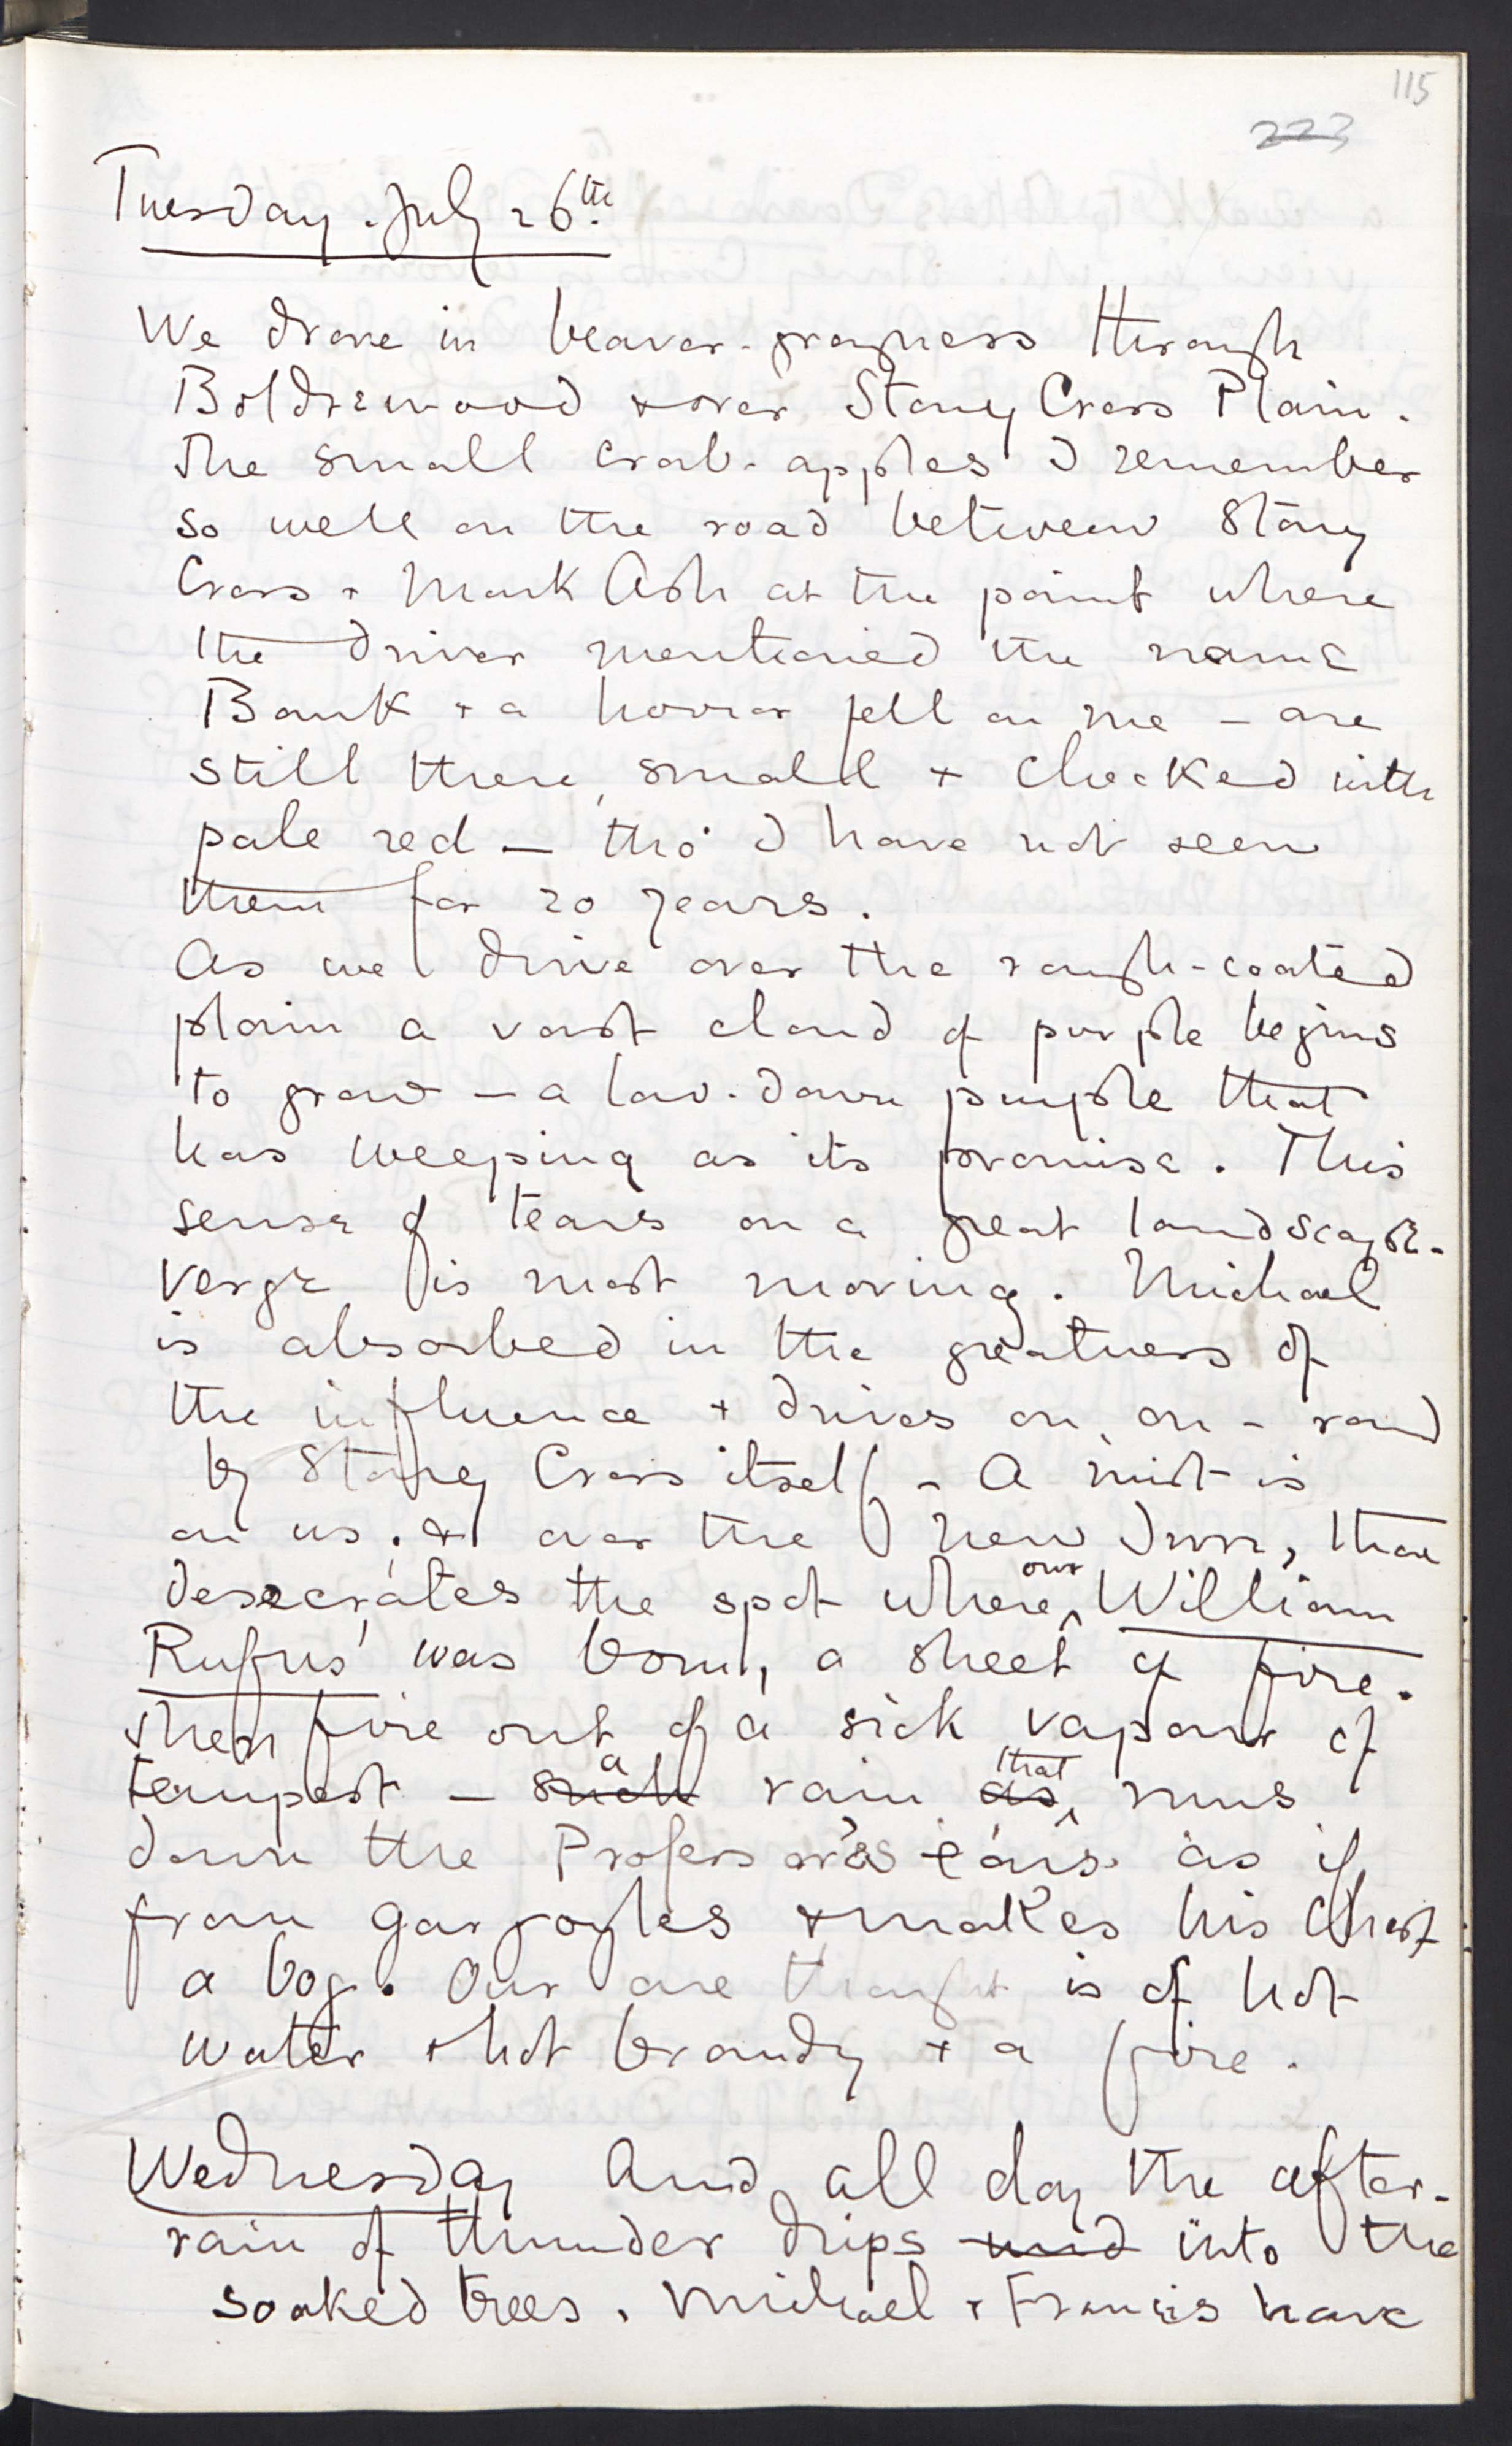 115
223
Tuesday. July 26th.
We drove in beaver-progress through
Boldrewood & over Stony Cross Plain.
The small crab-apples I remember
so well on the road between Stony
Cross & Mark Ash at the point where
the driver mentioned the name
Bank & a horror fell on me – are
still there, small & cheeked with
pale red – tho' I have not seen
them for 20 years.
As we drive over the rough-coated
plain a vast cloud of purple begins
to grow – a low-down purple that
has weeping as its promise. This
sense of tears on a great landscape-
verge is most moving. Michael
is absorbed in the greatness of
the influence & drives on, on – round
by Stony Cross itself – A mist is
on us, & over the new Inn, that
desecrates the spot where our William
Rufus was born, a sheet of fire.
then fire out of a sick vapour of
tempest – such a rain as that runs
down the Professor's ears as if
from gargoyles & makes his chest
a bog. Our one thought is of hot
water & hot brandy & a fire.
Wednesday And all day the after-
rain of thunder drips into the
soaked trees. Michael & Francis have